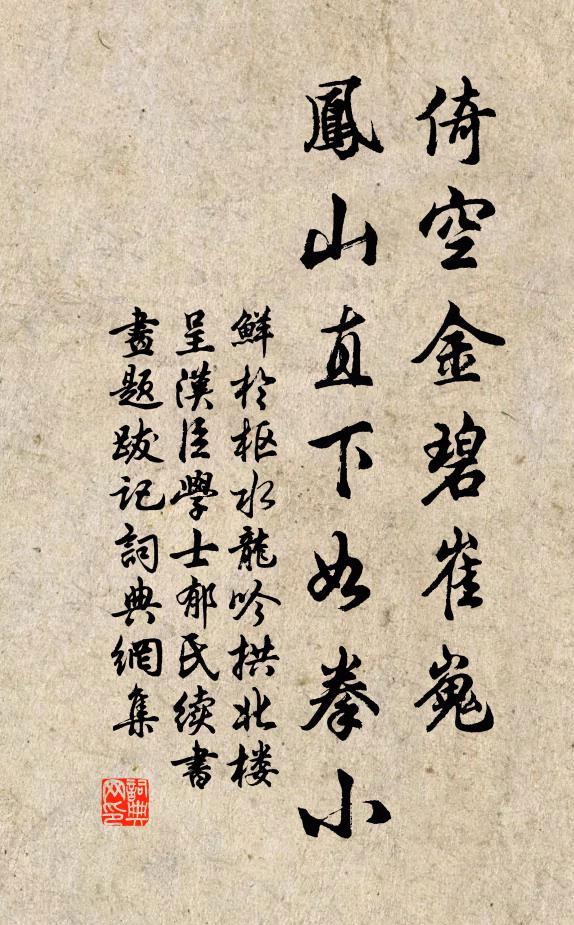 倚空金碧崔嵬
鳳山直下如拳小
鮮於枢水龍吟拱北楼
呈漢臣學士郁氏续書
畫題跋记詞典網集
詞典网印